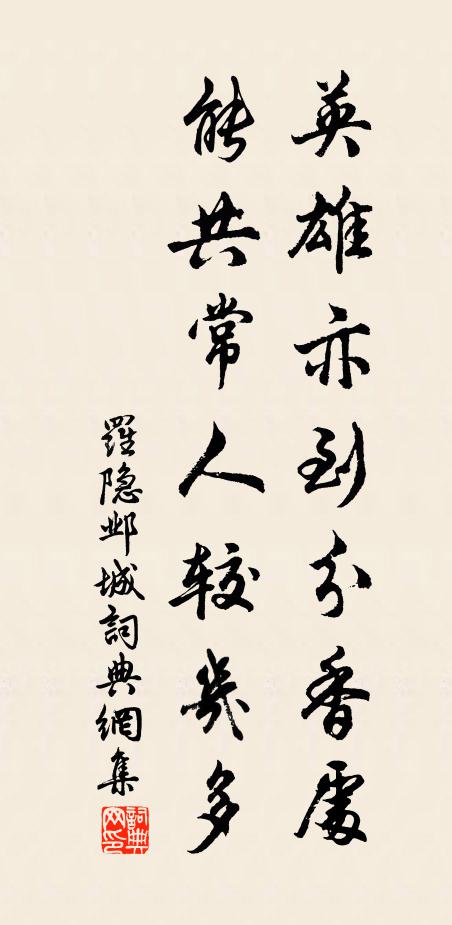 英雄亦到分香處
能共常人较幾多
羅隐邺城詞典網集
詞典网印